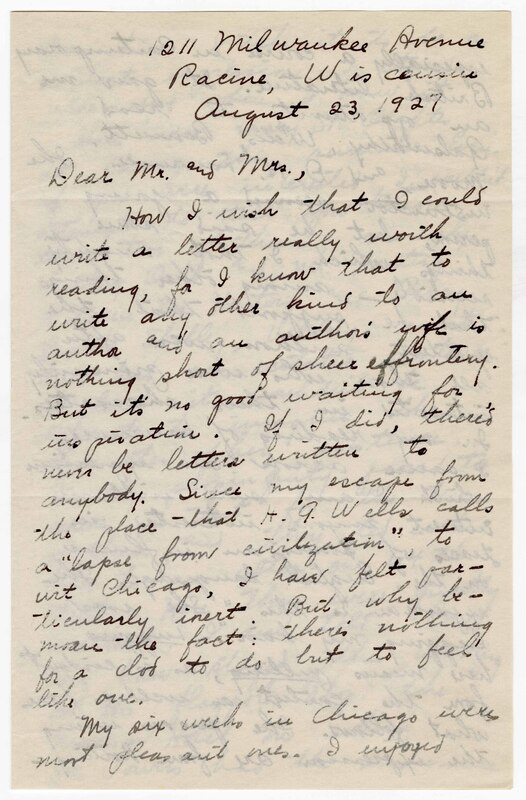 1211 Milwaukee Avenue
Racine, Wisconsin
August 23, 1927
Dear Mr. and Mrs.,
How I wish that I could
write a letter really worth
reading, for I know that to
write any other kind to an
author and an author's wife is
nothing short of sheer effrontery.
But it's no good waiting for
inspiration. If I did, there'd
never be letters written to
anybody. Since my escape from
the place that H. G. Wells calls
a "lapse from civilization", to
wit Chicago, I have felt par-
ticularly inert. But why be-
moan the fact: there's nothing
for a clod to do but to feel
like one.
My six weeks in Chicago were
most pleasant ones. I enjoyed